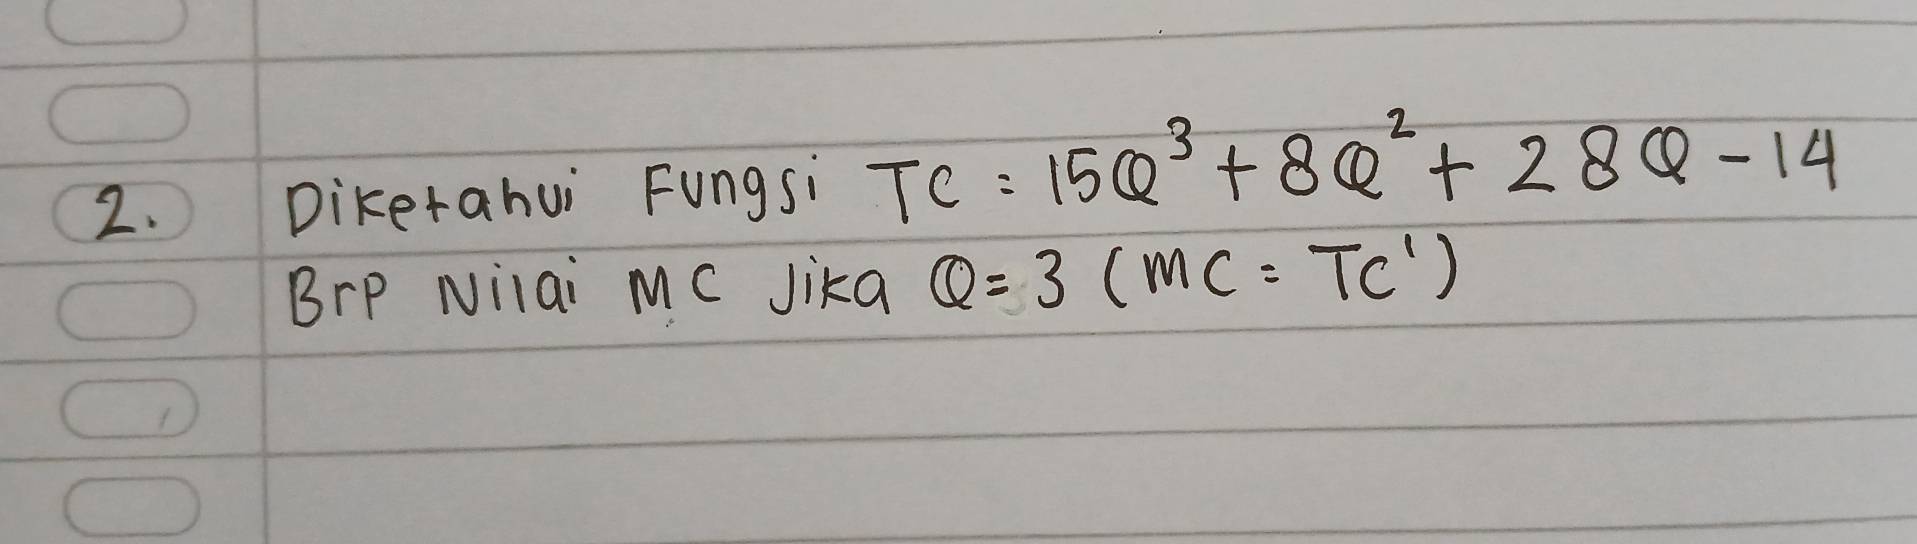 2. Diketahui Fungsi TC = 15Q³ + 8Q² + 28Q - 14
Brp Nilai MC Jika Q = 3 (MC = TC')